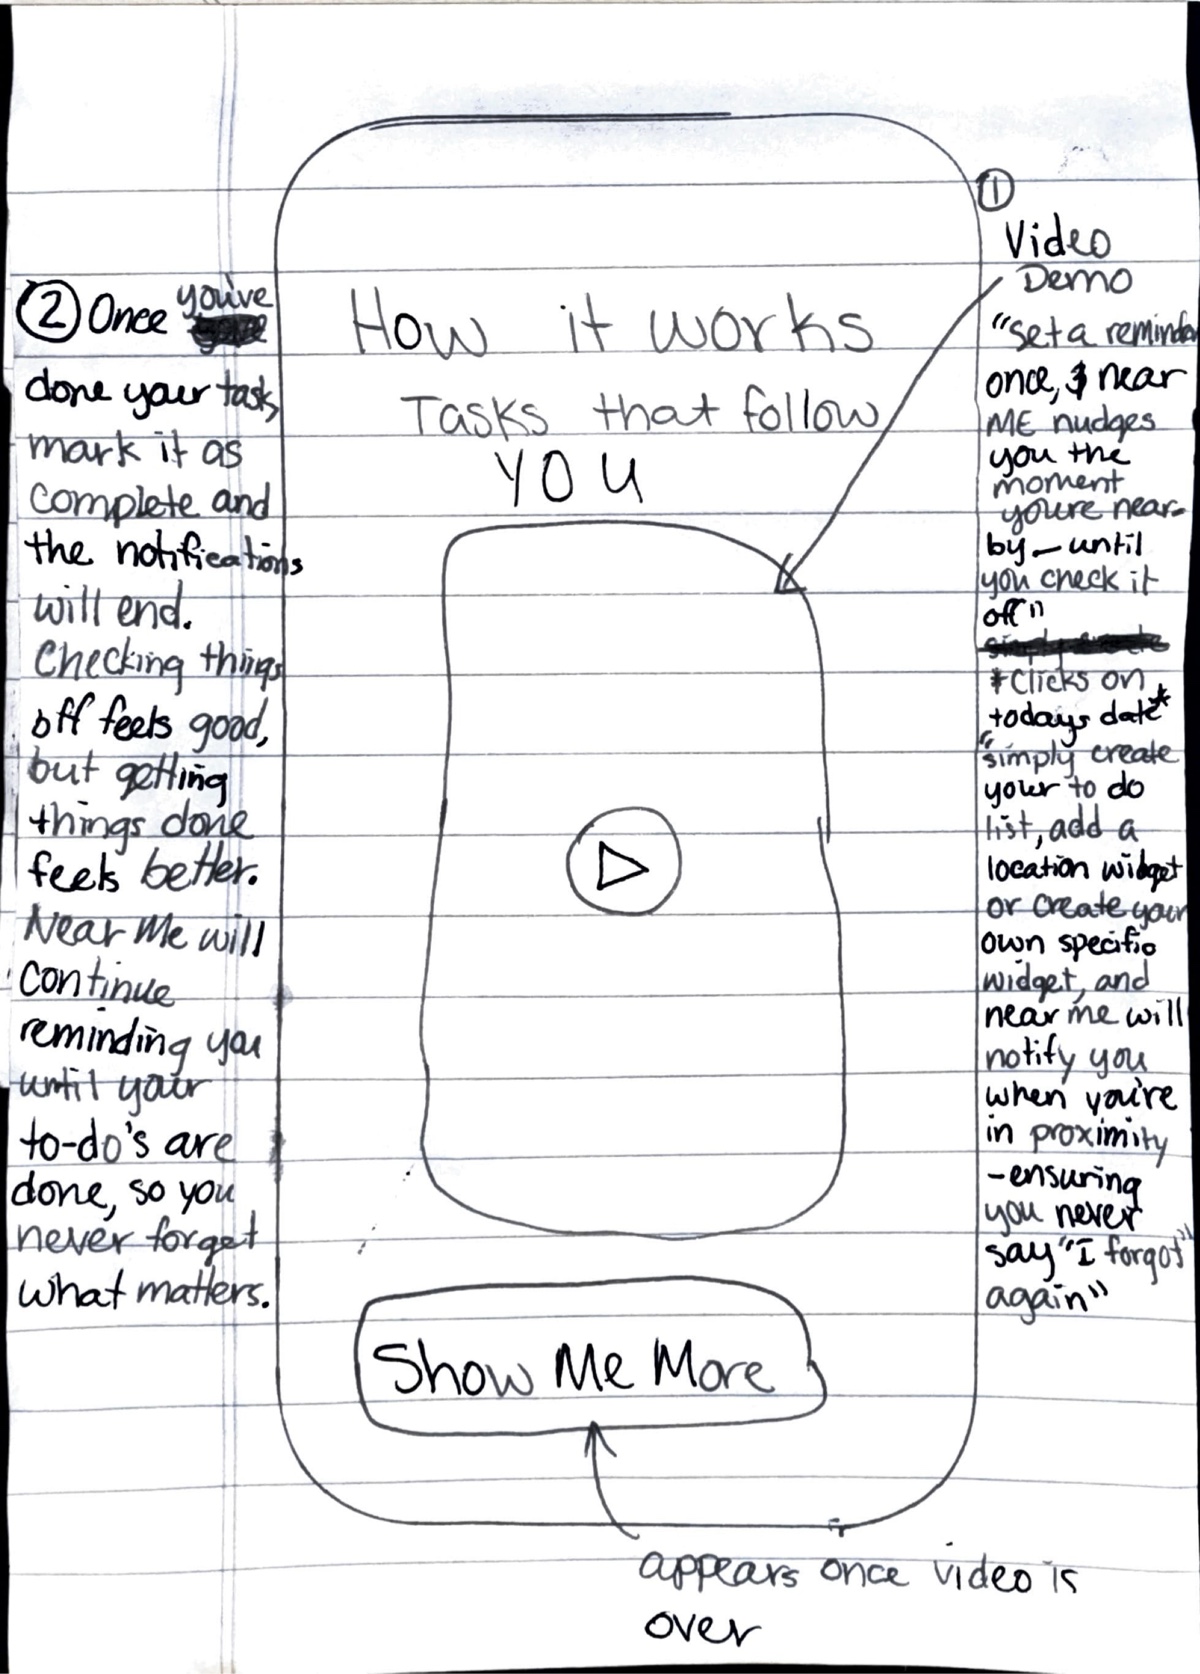 How it works
Tasks that follow
YOU
①
Video
Demo
"set a reminder
once, & near
ME nudges
you the
moment
youre near-
by — until
you check it
off"
*Clicks on
todays date*
"simply create
your to do
list, add a
location widget
or create your
own specific
widget, and
near me will
notify you
when you're
in proximity
-ensuring
you never
say "I forgot"
again"
② Once you've
done your task,
mark it as
complete and
the notifications
will end.
Checking things
off feels good,
but getting
things done
feels better.
Near Me will
continue
reminding you
until your
to-do's are
done, so you
never forget
what matters.
Show Me More
appears once video is
over